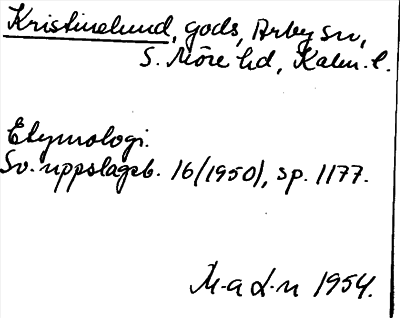 Kristinelund, gods, Arby sn,
S. Möre hd, Kalm. l.
Etymologi.
Sv. uppslagsb. 16 (1950), sp. 1177.
M-a L-n 1954.